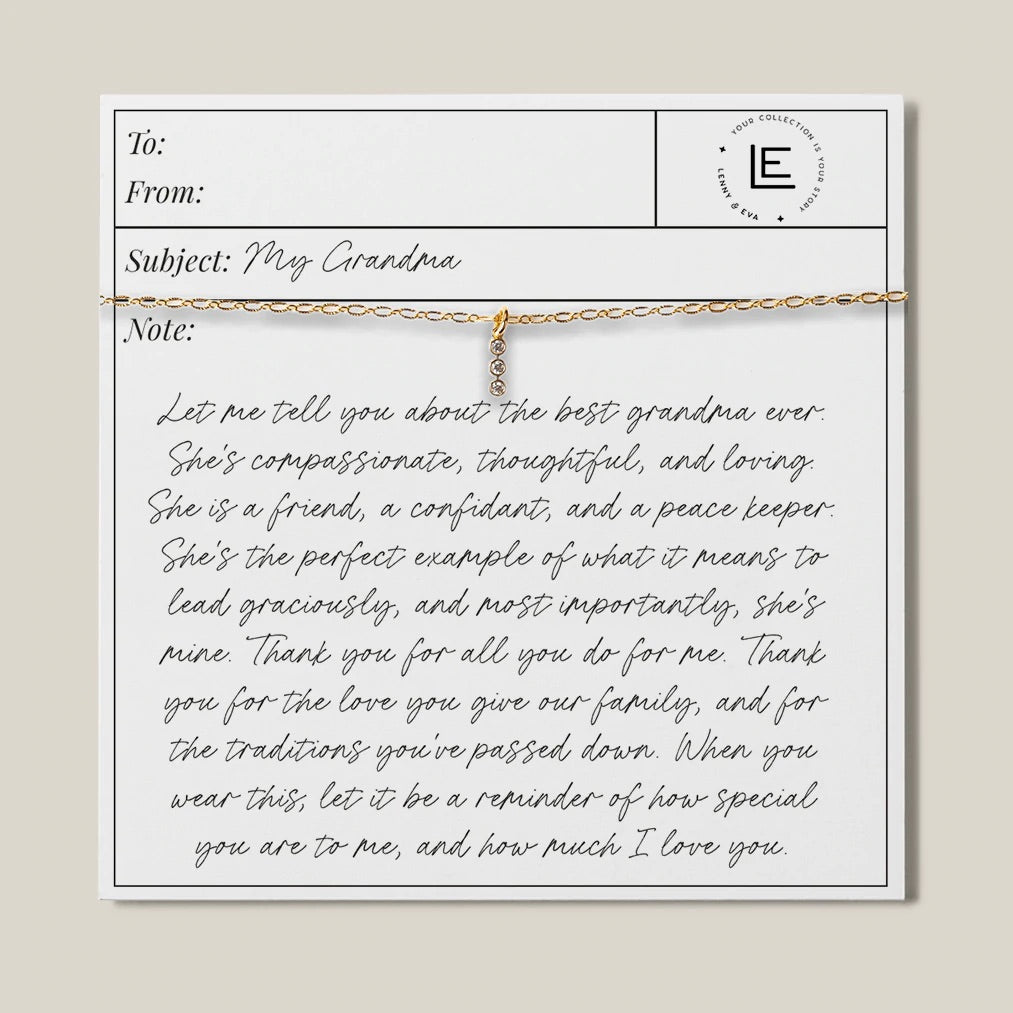 To:
From:
YOUR COLLECTION IS YOUR STORY
LENNY & EVA
LE
Subject: My Grandma
Note:
Let me tell you about the best grandma ever.
She's compassionate, thoughtful, and loving.
She is a friend, a confidant, and a peace keeper.
She's the perfect example of what it means to
lead graciously, and most importantly, she's
mine. Thank you for all you do for me. Thank
you for the love you give our family, and for
the traditions you've passed down. When you
wear this, let it be a reminder of how special
you are to me, and how much I love you.